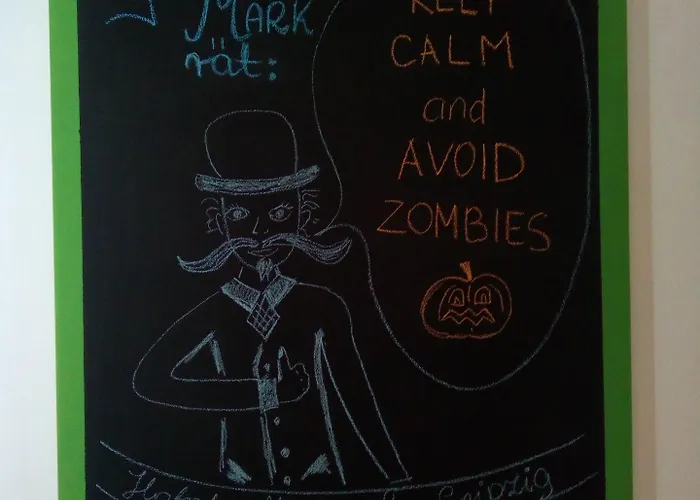 MARK
rät:
KEEP
CALM
and
AVOID
ZOMBIES
Leipzig